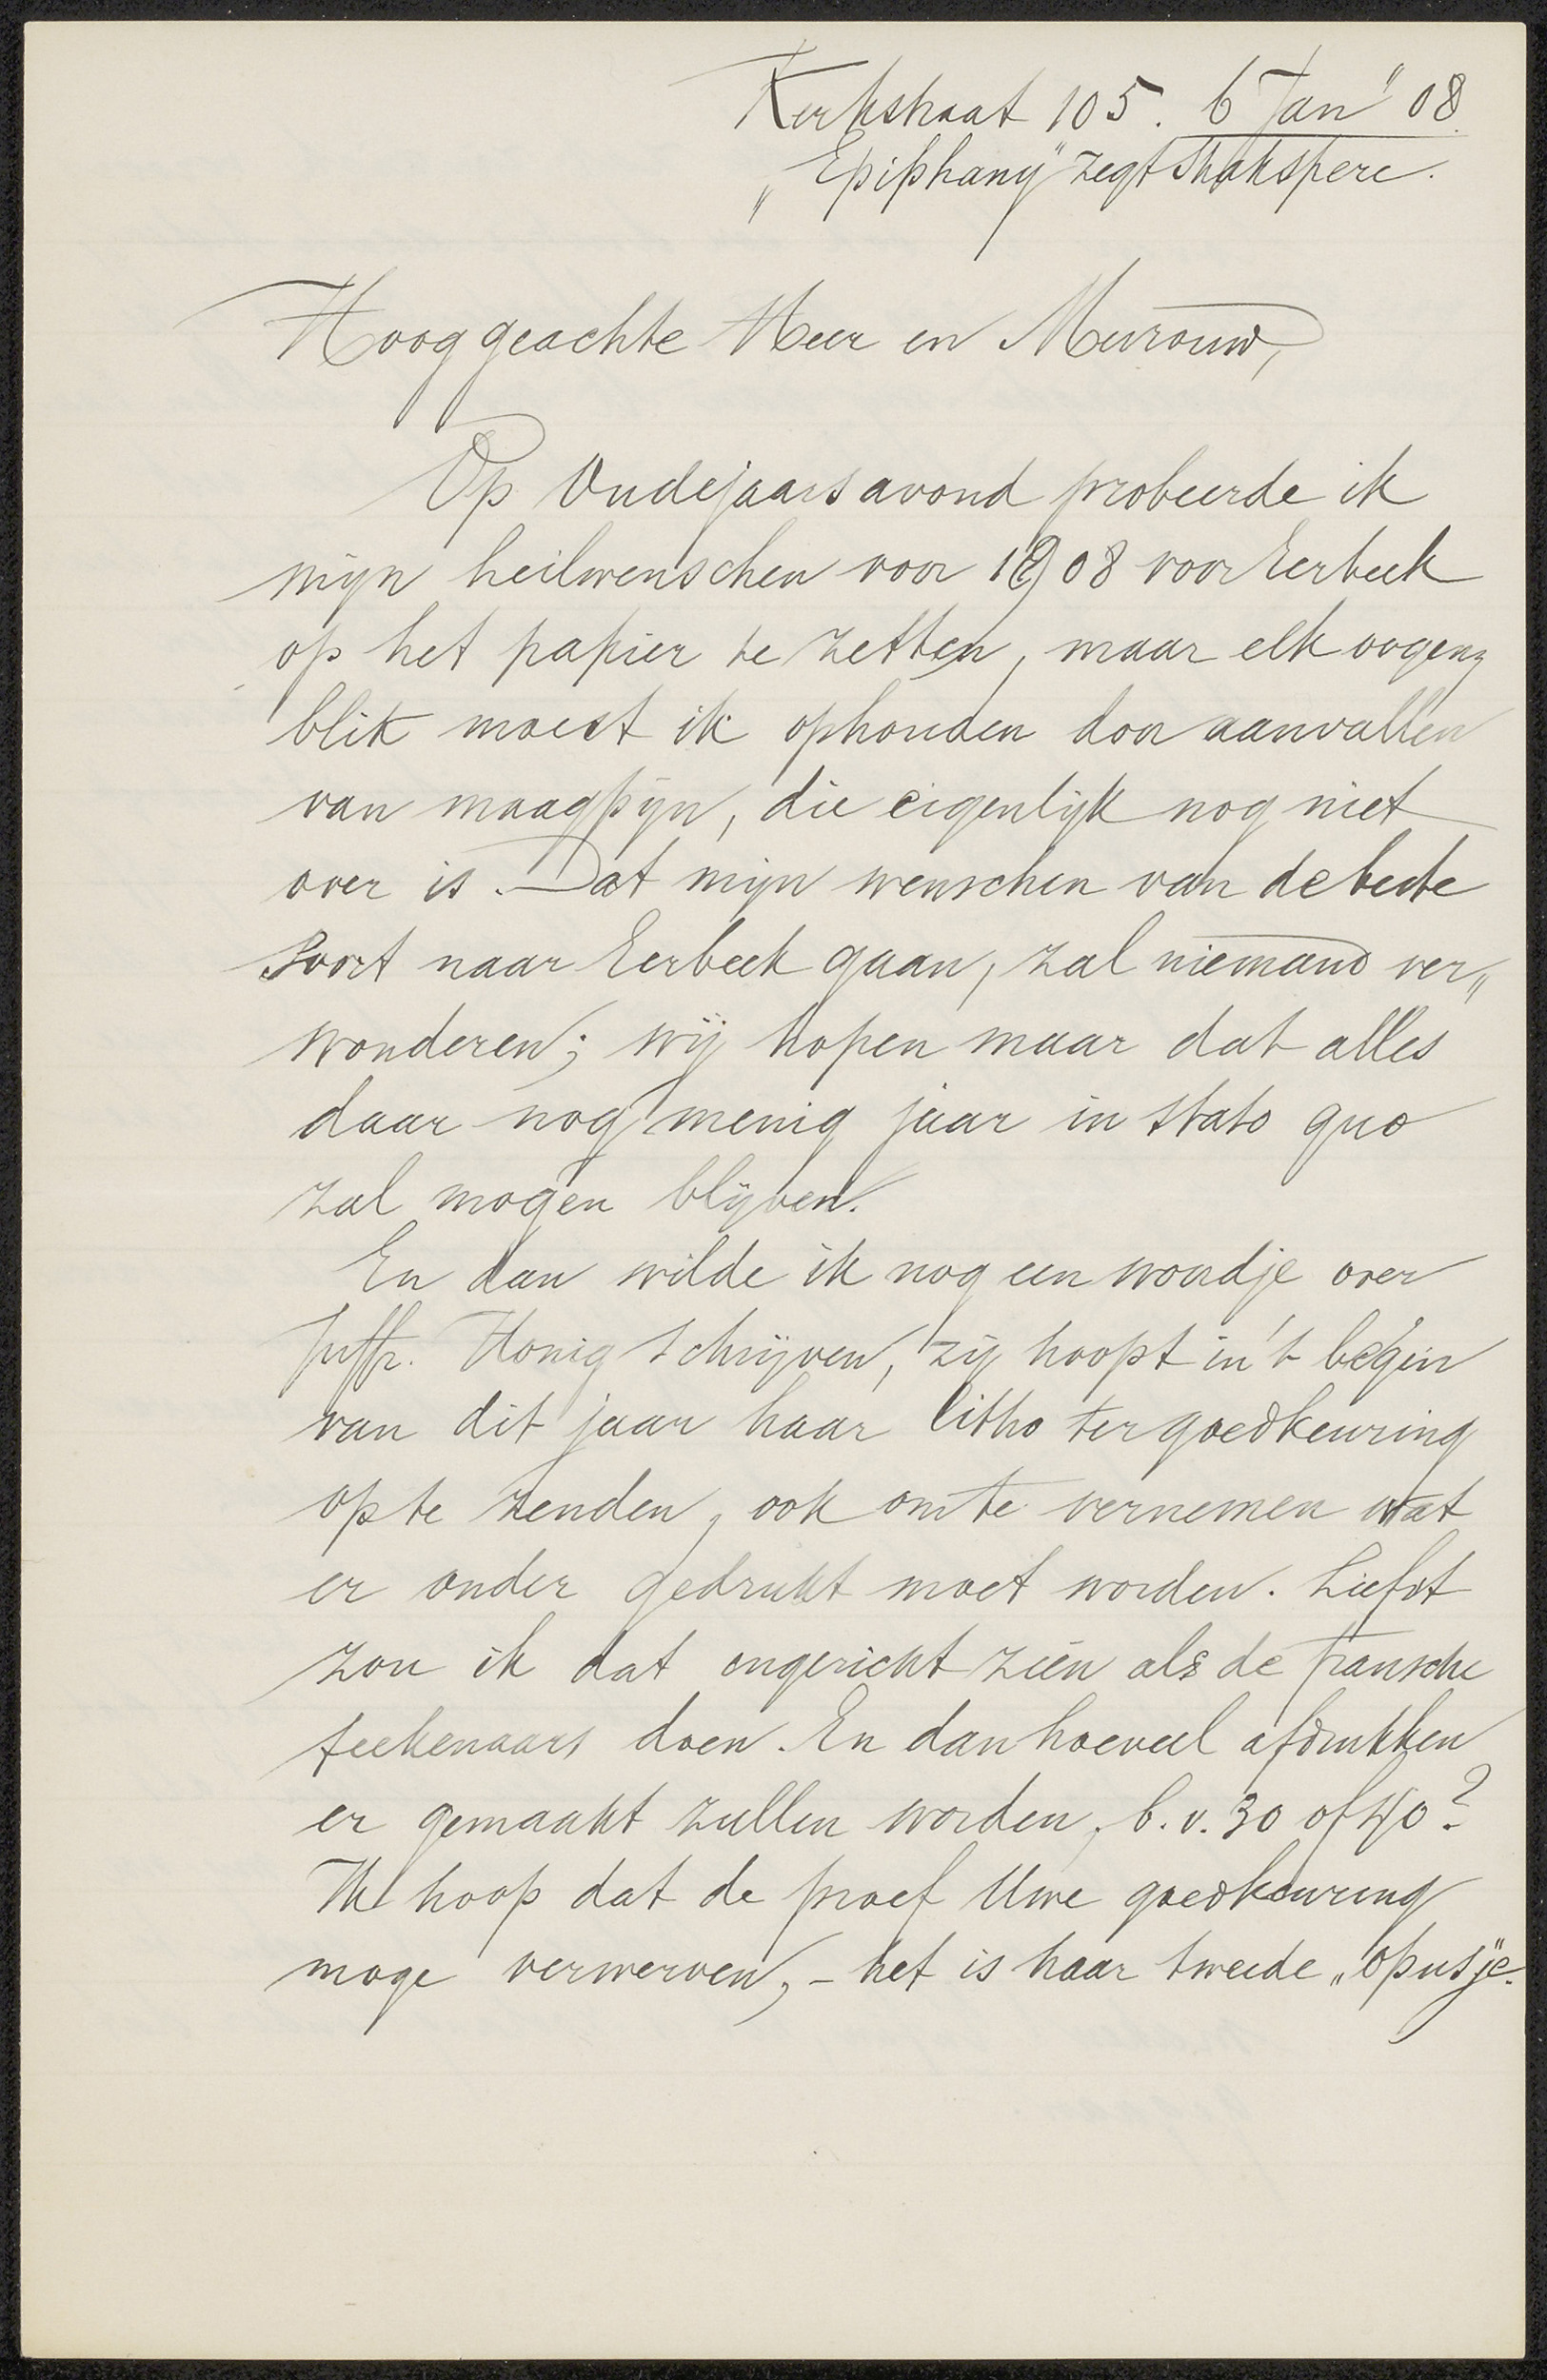 Kerkstraat 105. 6 Jan" 08.
„Epiphany" zegt Shakspere.
Hooggeachte Heer en Mevrouw,
Op Oudejaarsavond probeerde ik
mijn heilwenschen voor 1908 voor Eerbeek
op het papier te zetten, maar elk oogen=
blik moest ik ophouden door aanvallen
van maagpijn, die eigenlijk nog niet
over is. Dat mijn wenschen van de beste
soort naar Eerbeek gaan, zal niemand ver„
wonderen; wij hopen maar dat alles
daar nog menig jaar in stato quo
zal mogen blijven.
En dan wilde ik nog een woordje over
Juffr. Honig schrijven, zij hoopt in 't begin
van dit jaar haar litho ter goedkeuring
op te zenden, ook om te vernemen wat
er onder gedrukt moet worden. Liefst
zou ik dat ongericht zien als de fransche
teekenaars doen. En dan hoeveel afdrukken
er gemaakt zullen worden, b.v. 30 of 40?
Ik hoop dat de proef Uwe goedkeuring
moge verwerven, – het is haar tweede „opusje".